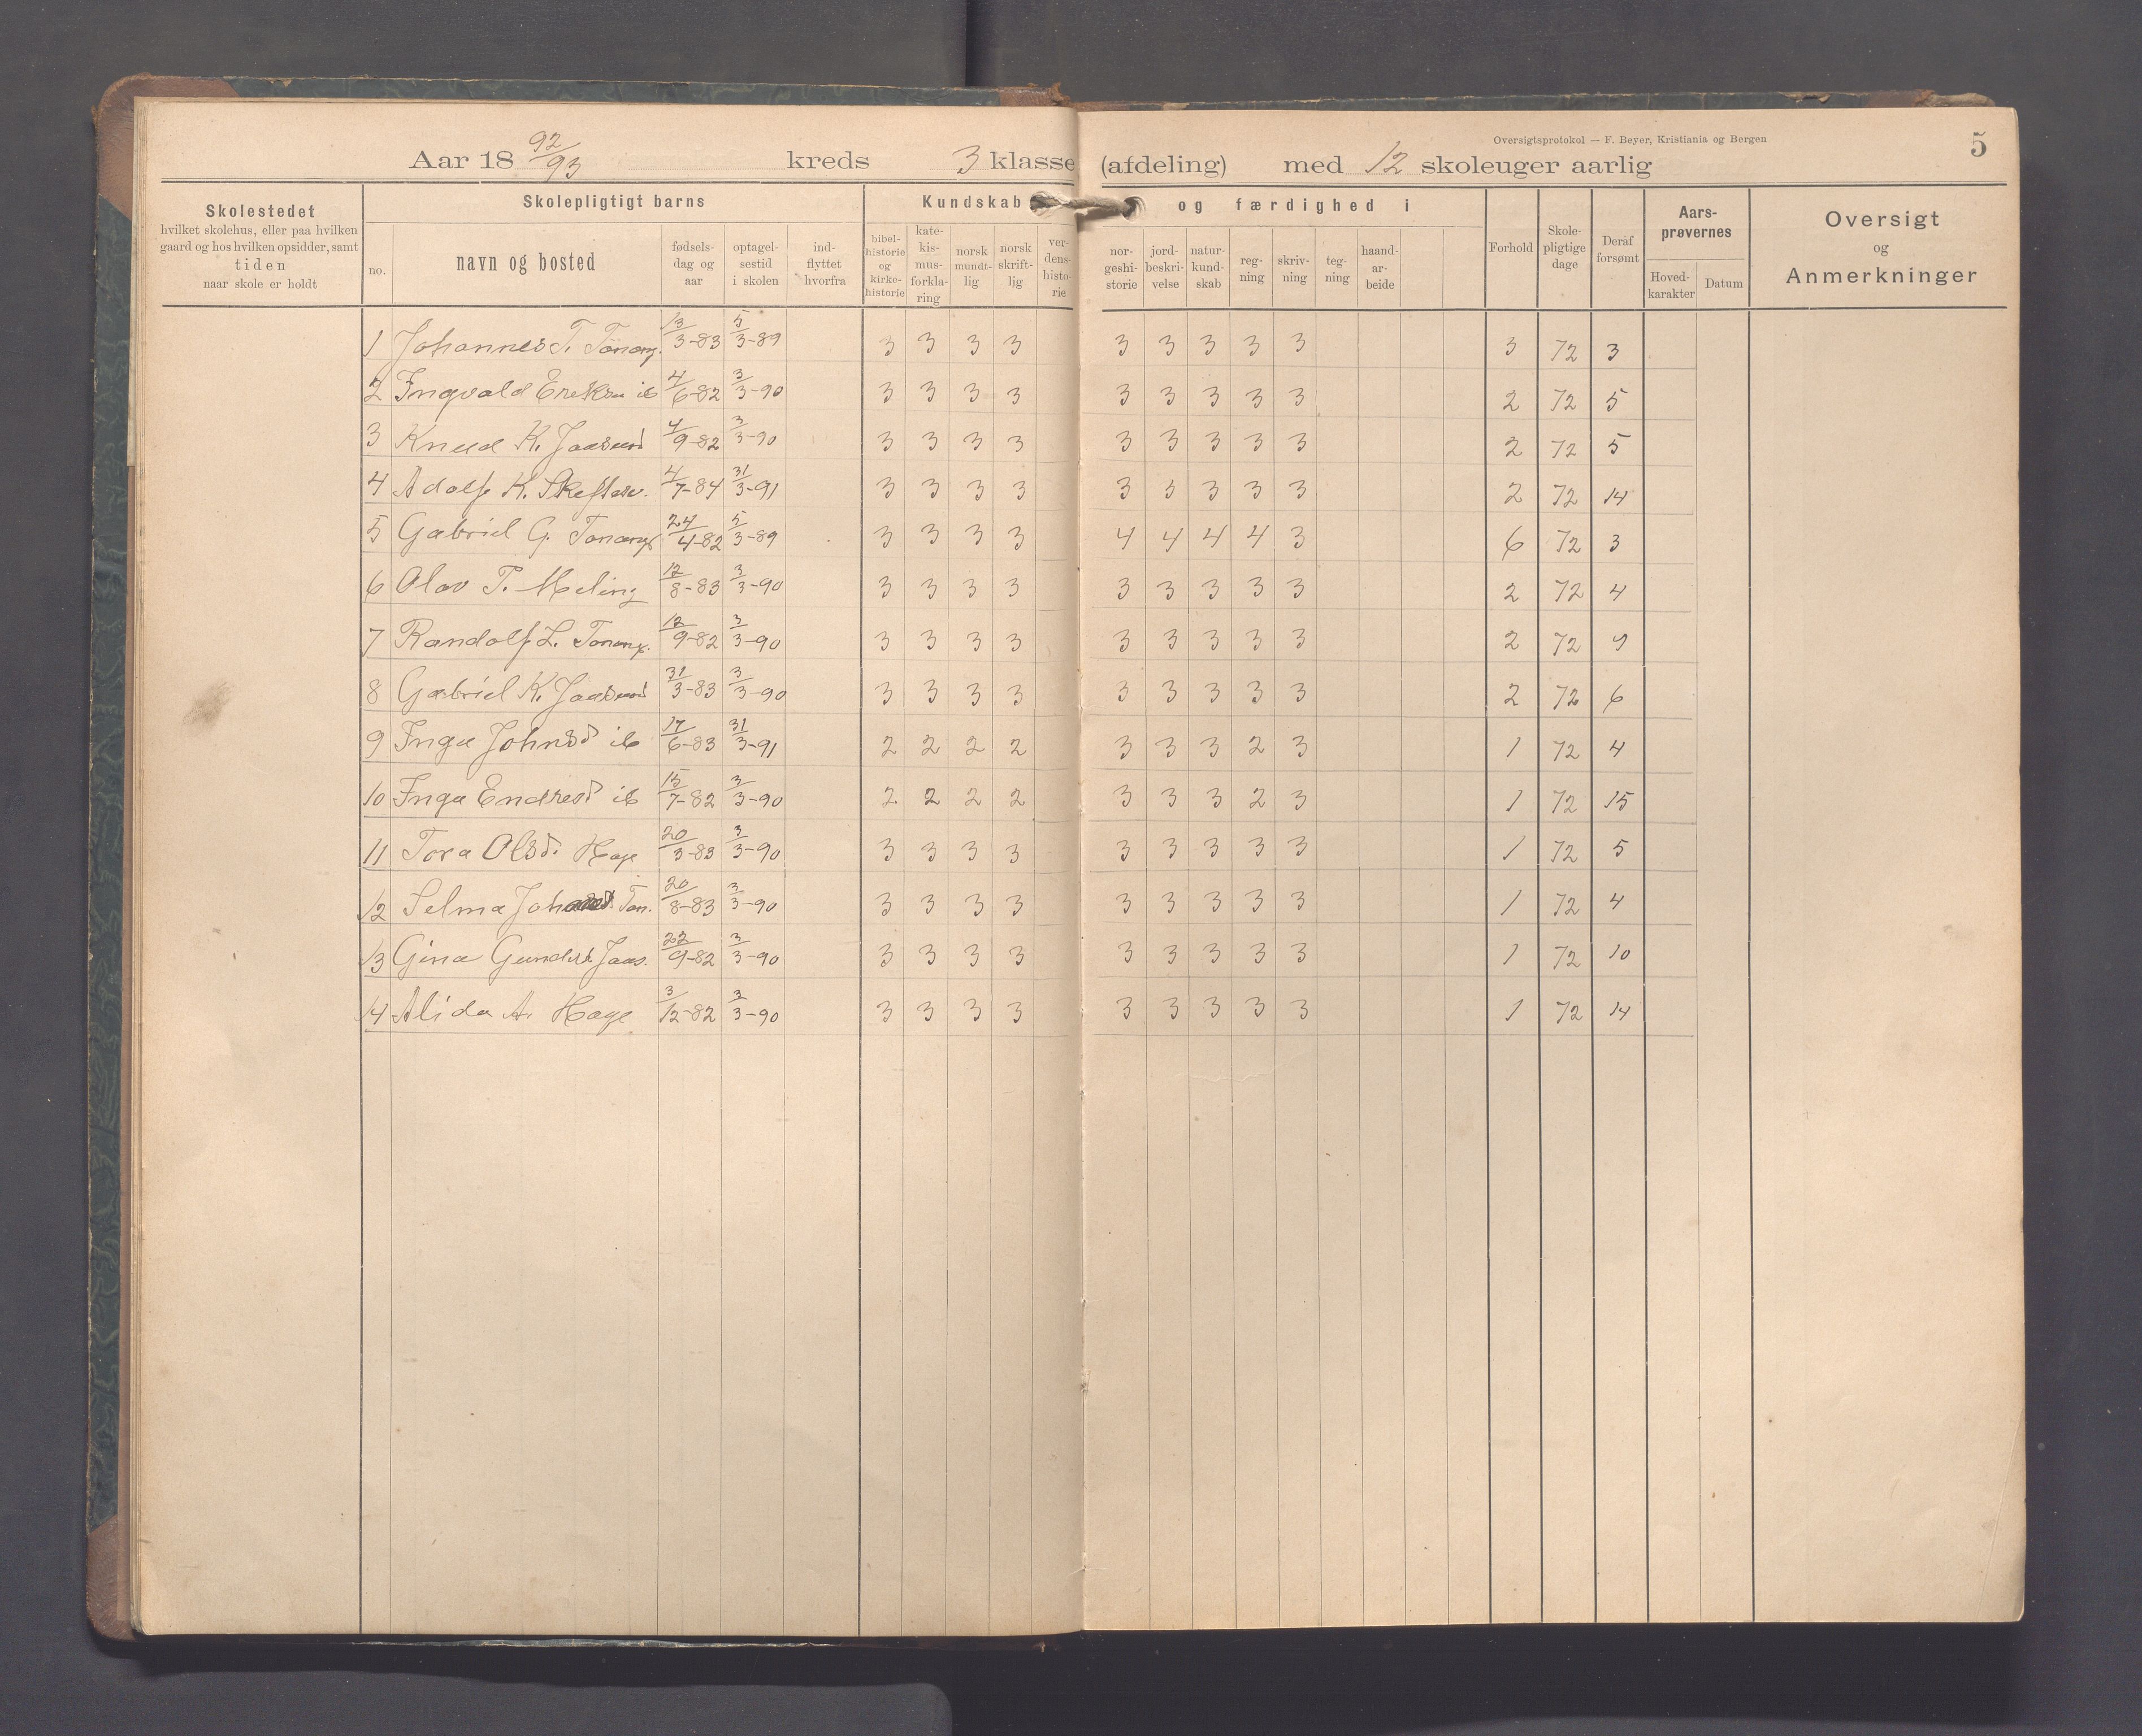 Oversigtsprotokol — F. Beyer, Kristiania og Bergen
5
Aar 18 92/93 kreds 3 klasse (afdeling) med 12 skoleuger aarlig
Skolestedet
hvilket skolehus, eller paa hvilken
gaard og hos hvilken opsidder, samt
tiden
naar skole er holdt
Skolepligtigt barns
no.
navn og bosted
fødsels-
dag og
aar
optagel-
sestid
i skolen
ind-
flyttet
hvorfra
Kundskab og færdighed i
bibel-
historie
og
kirke-
historie
kate-
kis-
mus-
forkla-
ring
norsk
mundt-
lig
norsk
skrift-
lig
ver-
dens-
histo-
rie
nor-
geshi-
storie
jord-
beskri-
velse
natur-
kund-
skab
reg-
ning
skriv-
ning
teg-
ning
haand-
ar-
beide
Forhold
Skole-
pligtige
dage
Deraf
forsømt
Aars-
prøvernes
Hoved-
karakter
Datum
Oversigt
og
Anmerkninger
1 Johannes T. Tonang. 13/3-83 5/3-89 3 3 3 3 3 3 3 3 3 3 72 3
2 Ingvald Ereksu ib 4/6-82 3/3-90 3 3 3 3 3 3 3 3 3 2 72 5
3 Knud K. Jaasund 4/9-82 3/3-90 3 3 3 3 3 3 3 3 3 2 72 5
4 Adolf K. 4/7-84 31/3-91 3 3 3 3 3 3 3 3 3 2 72 14
5 Gabriel G. Tonang 24/4-82 5/3-89 3 3 3 3 4 4 4 4 3 6 72 3
6 Olav T. Meling 12/8-83 3/3-90 3 3 3 3 3 3 3 3 3 2 72 4
7 Randolf L. Tonang. 12/9-82 3/3-90 3 3 3 3 3 3 3 3 3 2 72 9
8 Gabriel K. Jaasund 31/3-83 3/3-90 3 3 3 3 3 3 3 3 3 2 72 6
9 Inga Johnsd ib 17/6-83 31/3-91 2 2 2 2 3 3 3 2 3 1 72 4
10 Inga Endresd ib 15/7-82 3/3-90 2 2 2 2 3 3 3 2 3 1 72 15
11 Tora Olsd. Hage 20/3-83 3/3-90 3 3 3 3 3 3 3 3 3 1 72 5
12 Selma Ton. 20/8-83 3/3-90 3 3 3 3 3 3 3 3 3 1 72 4
13 Gina Jaas. 22/9-82 3/3-90 3 3 3 3 3 3 3 3 3 1 72 10
14 Alida A. Hage 3/12-82 3/3-90 3 3 3 3 3 3 3 3 3 1 72 14